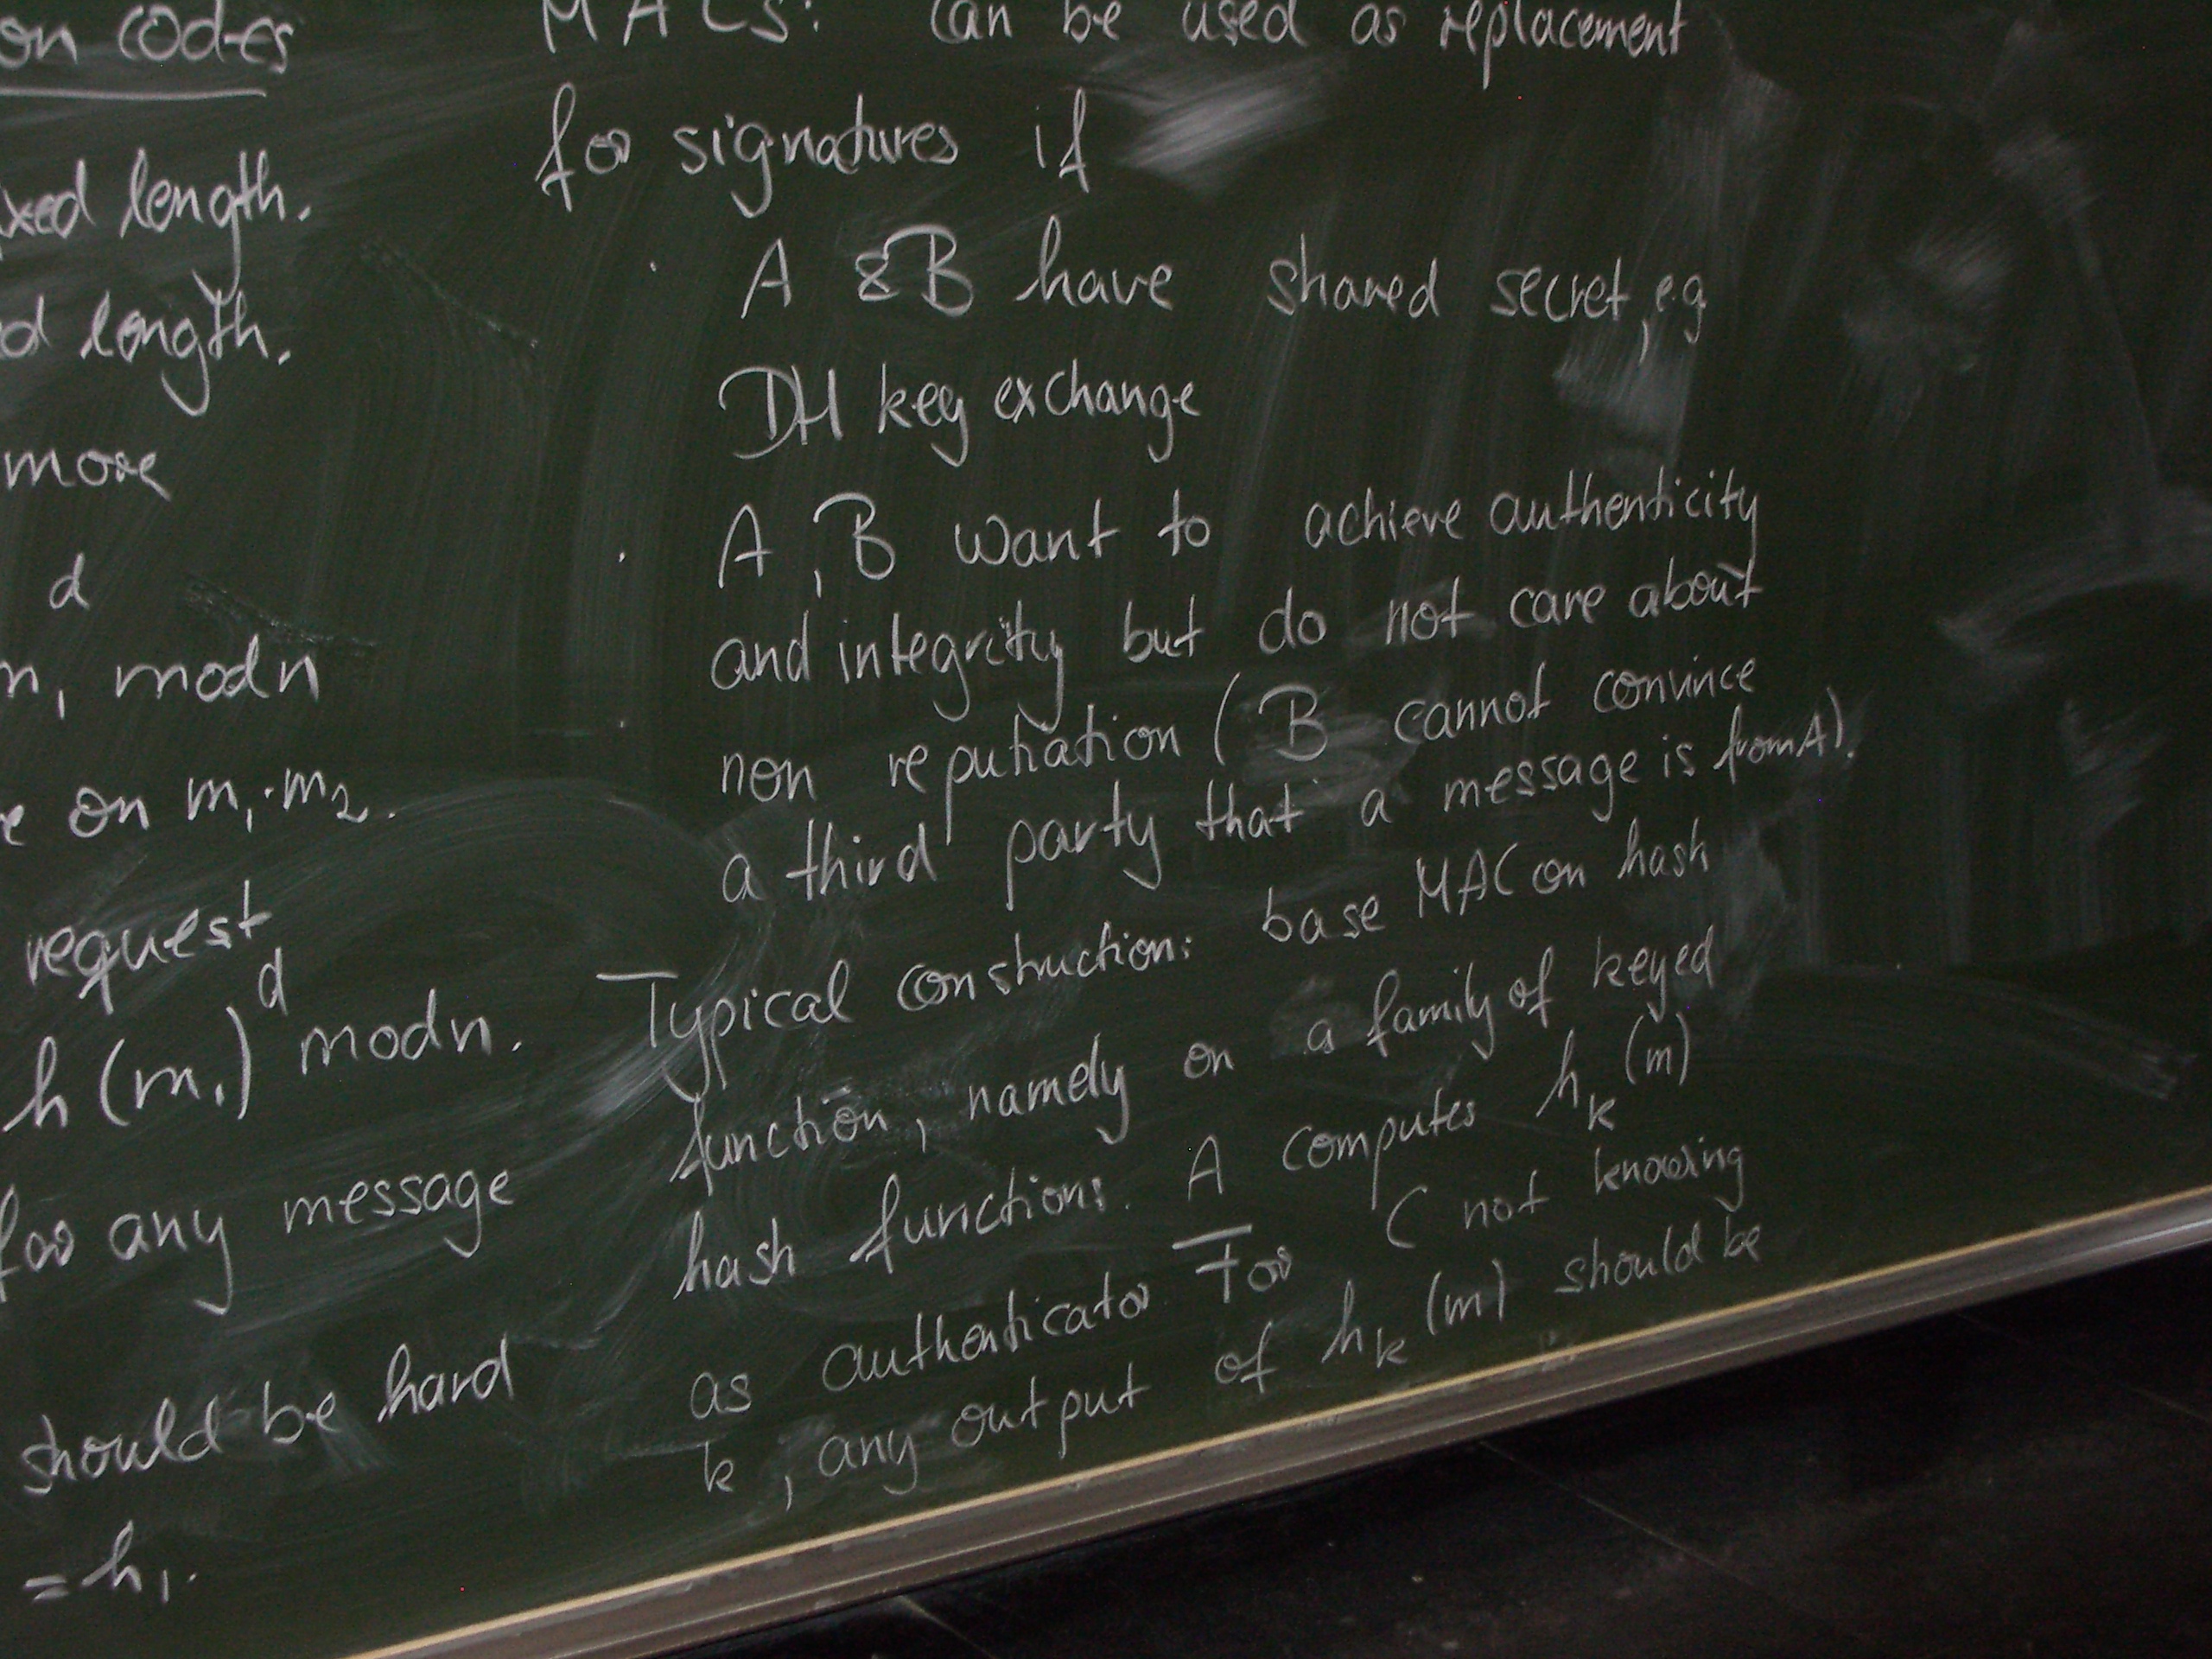 on codes
xed length.
d length.
more
d
m₁ modn
e on m₁·m₂.
request
h(m₁)ᵈ modn.
for any message
should be hard
= h₁.
MACs: can be used as replacement
for signatures if
· A & B have shared secret, eg
DH key exchange
· A, B want to achieve authenticity
and integrity but do not care about
non reputiation (B cannot convince
a third party that a message is from A).
Typical construction: base MAC on hash
function, namely on a family of keyed
hash functions. A computes hₖ(m)
as authenticator. For C not knowing
k, any output of hₖ(m) should be